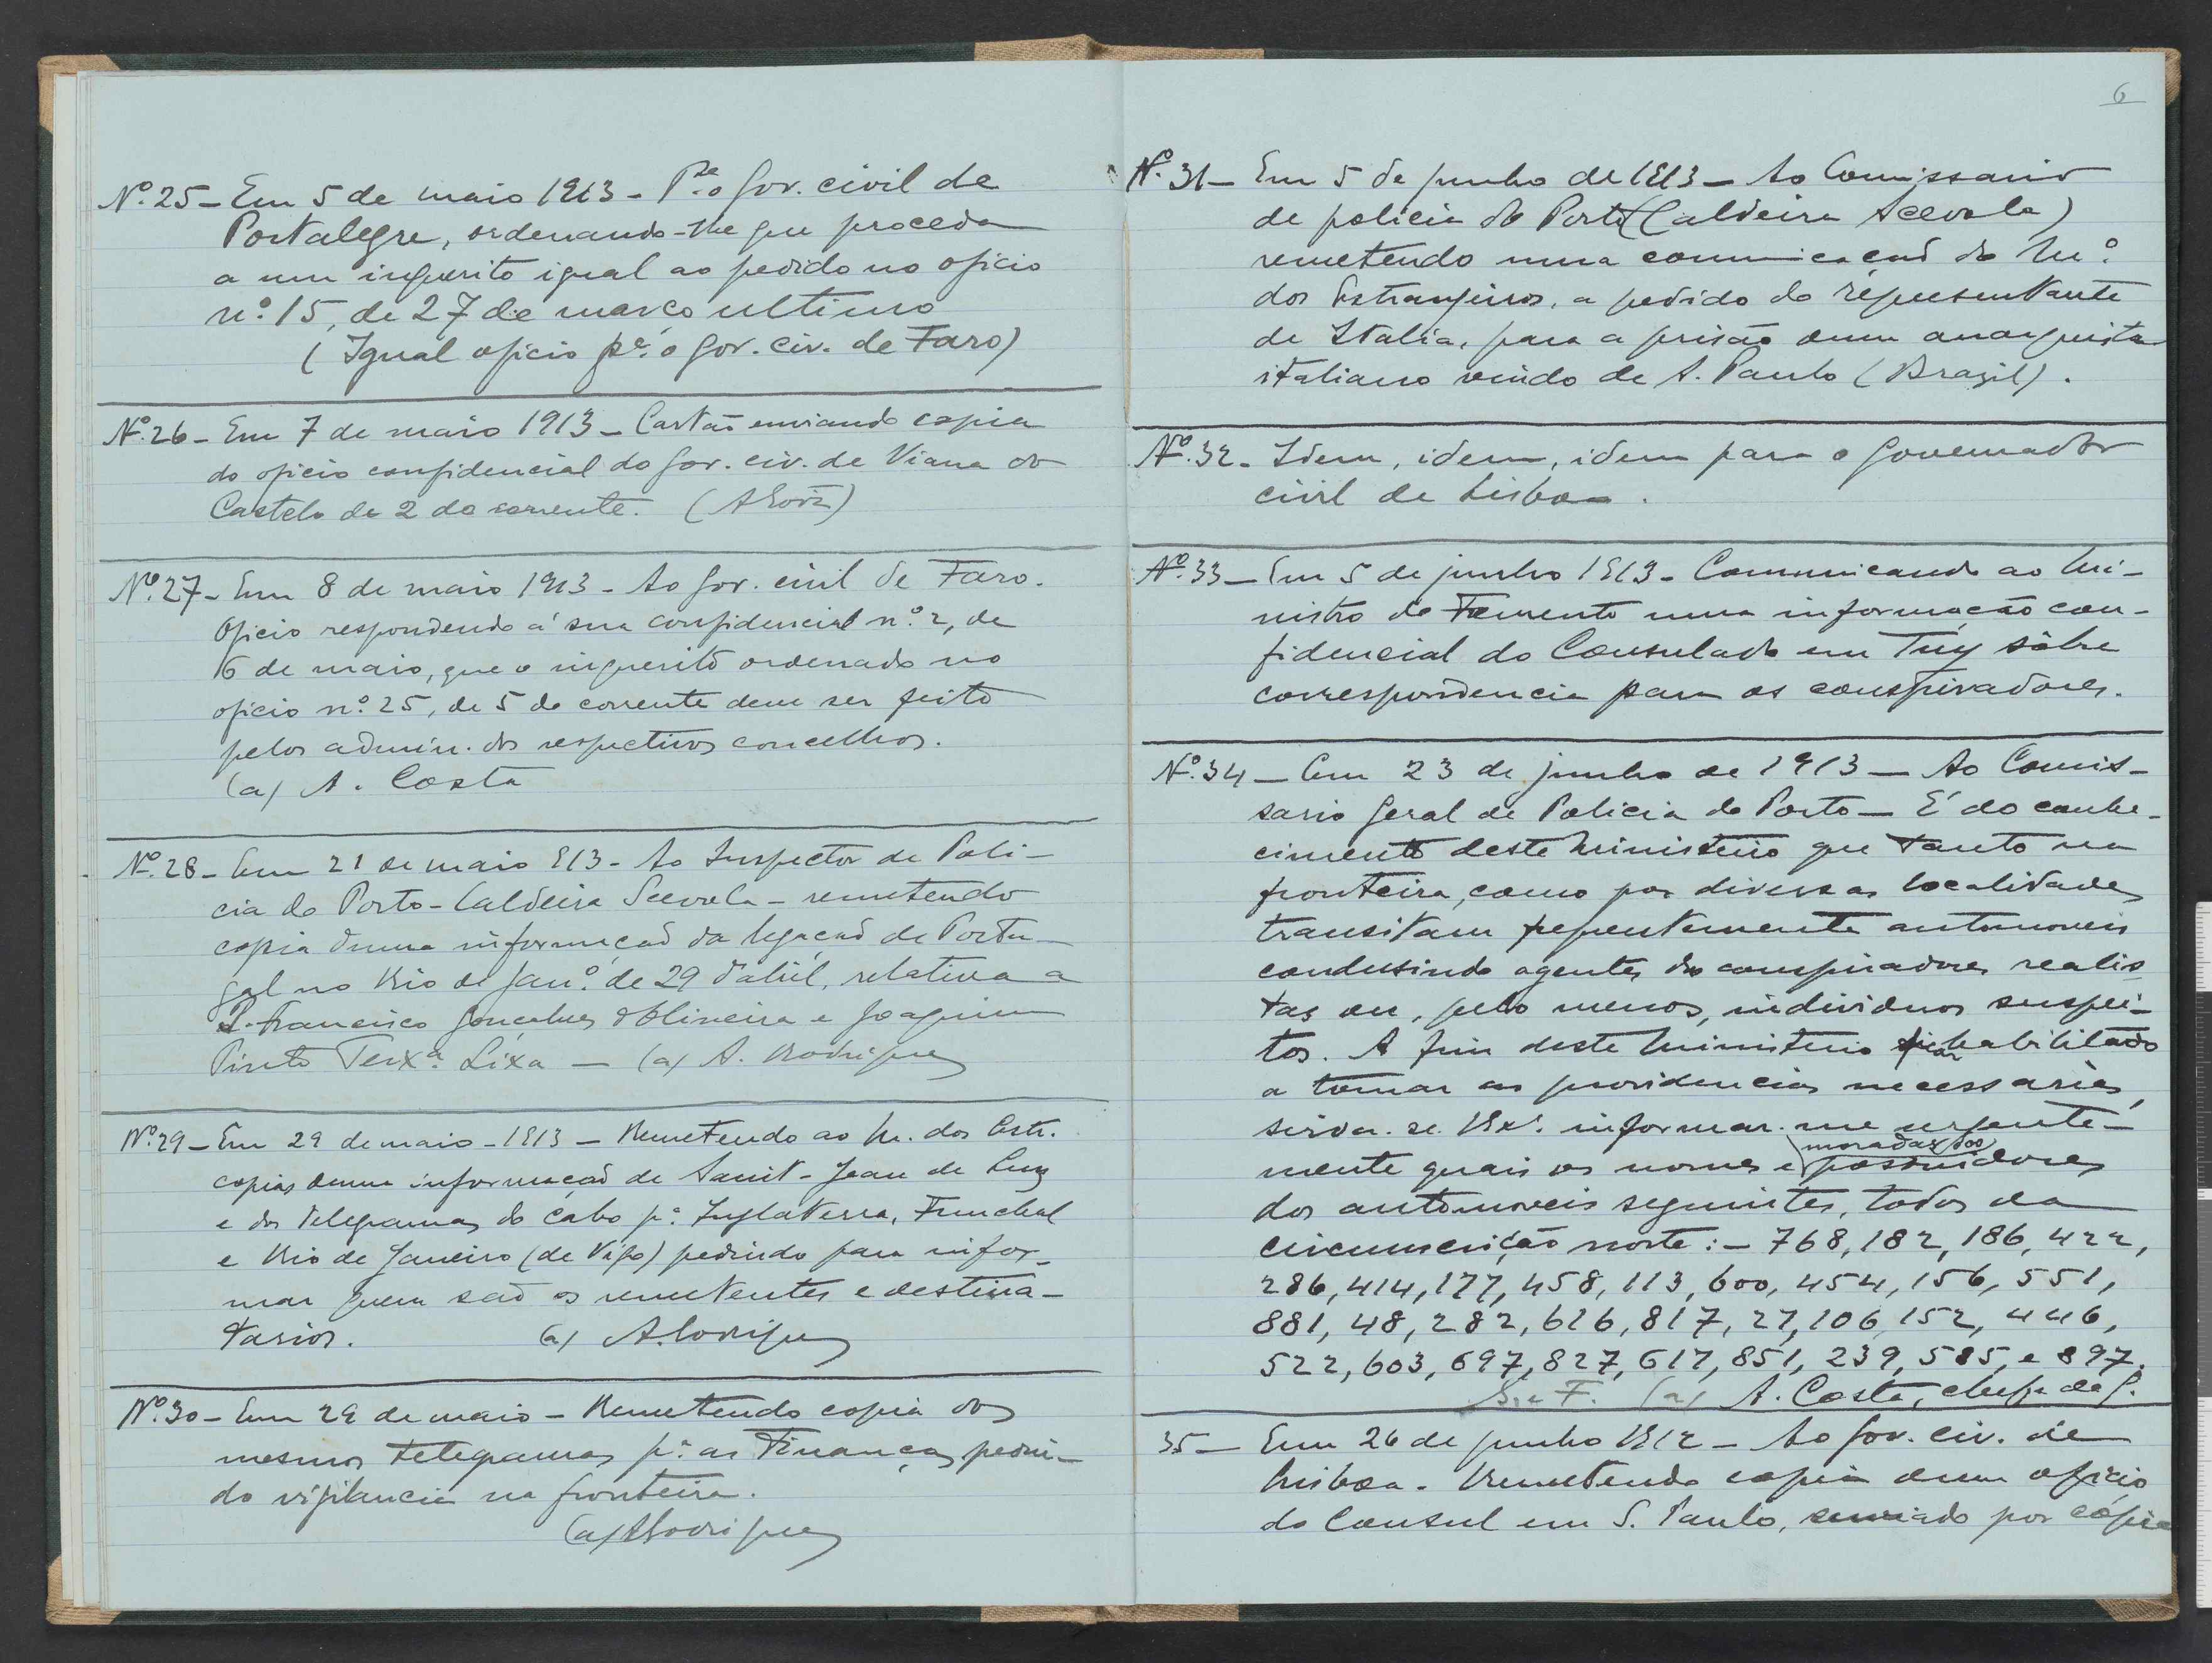 Nº. 25 - Em 5 de maio 1913 - Pª o Gov. civil de
Portalegre, ordenando-lhe que proceda
a um inquerito igual ao pedido no oficio
nº. 15, de 27 de março ultimo
(Igual oficio pª. o Gov. civ. de Faro)
Nº. 26 - Em 7 de maio 1913 - Cartão enviando copia
do oficio confidencial do Gov. civ. de Viana do
Castelo de 2 do corrente.
Nº. 27 - Em 8 de maio 1913 - Ao Gov. civil de Faro.
Oficio respondendo á sua confidencial nº. 2, de
6 de maio, que o inquerito ordenado no
oficio nº. 25, de 5 do corrente deve ser feito
pelos admin. dos respectivos concelhos.
(a) A. Costa
Nº. 28 - Em 21 de maio 913 - Ao Inspector de Poli-
cia do Porto - Caldeira Scevola - remetendo
copia duma informação da legação de Portu-
gal no Rio de Janº. de 29 d'abril, relativa a
P. Francisco Gonçalves d'Oliveira e Joaquim
Pinto Teixª. Lixa - (a) A. Rodrigues
Nº. 29 - Em 29 de maio - 1913 - Remetendo ao M. dos Estr.
copias duma informação de Saint-Jean de Luz
e dos telegramas do cabo pª. Inglaterra, Funchal
e Rio de Janeiro (de Vigo) pedindo para infor-
mar quem são os remetentes e destina-
tarios. (a) A. Rodrigues
Nº. 30 - Em 29 de maio - Remetendo copia dos
mesmos telegramas pª. as Finanças, pedin-
do vigilancia na fronteira.
(a) A Rodrigues
6
Nº. 31 - Em 5 de junho de 1913 - Ao Comissario
de policia do Porto (Caldeira Scevola)
remetendo uma comunicação do Mº.
dos Estrangeiros, a pedido do representante
de Italia, para a prisão dum anarquista
italiano vindo de S. Paulo (Brazil).
Nº. 32 - Idem, idem, idem para o Governador
civil de Lisboa.
Nº. 33 - Em 5 de junho 1913 - Communicando ao Mi-
nistro do Fomento uma informação con-
fidencial do Consulado em Tuy sôbre
correspondencia para os conspiradores.
Nº. 34 - Em 23 de junho de 1913 - Ao Comis-
sario Geral de Policia do Porto - É do conhe-
cimento deste Ministerio que tanto na
fronteira, como por diversas localidades
transitam frequentemente automoveis
condusindo agentes dos conspiradores realis
tas ou, pelo menos, individuos suspei-
tos. A fim deste Ministerio ficar habilitado
a tomar as providencias necessarias,
sirva-se V. Exª. informar-me urgente-
mente quais os nomes e moradas dos possuidores
dos automoveis seguintes, todos da
circumscrição norte: - 768, 182, 186, 422,
286, 414, 177, 458, 113, 600, 454, 156, 551,
881, 48, 282, 616, 817, 27, 106, 152, 446,
522, 603, 697, 827, 617, 851, 239, 585, e 897.
S. e F. (a) A. Costa, chefe de G.
35 - Em 26 de junho 1912 - Ao Gov. civ. de
Lisboa - Remetendo copia dum oficio
do Consul em S. Paulo, enviado por cópia